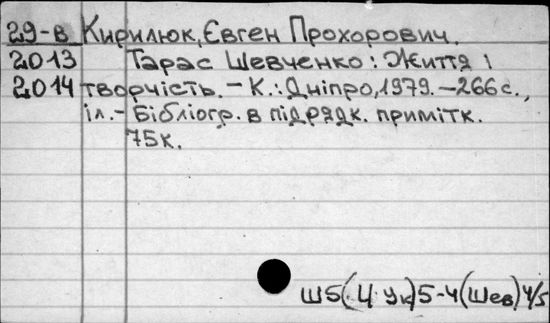 29-в Кирилюк, Євген Прохорович.
2013 Тарас Шевченко: Життя і
2014 творчість. — К.: Дніпро, 1979. — 266 с.,
іл. — Бібліогр. в підрядк. примітк.
75к.
Ш5(4 Ук)5-4(Шев)4/5